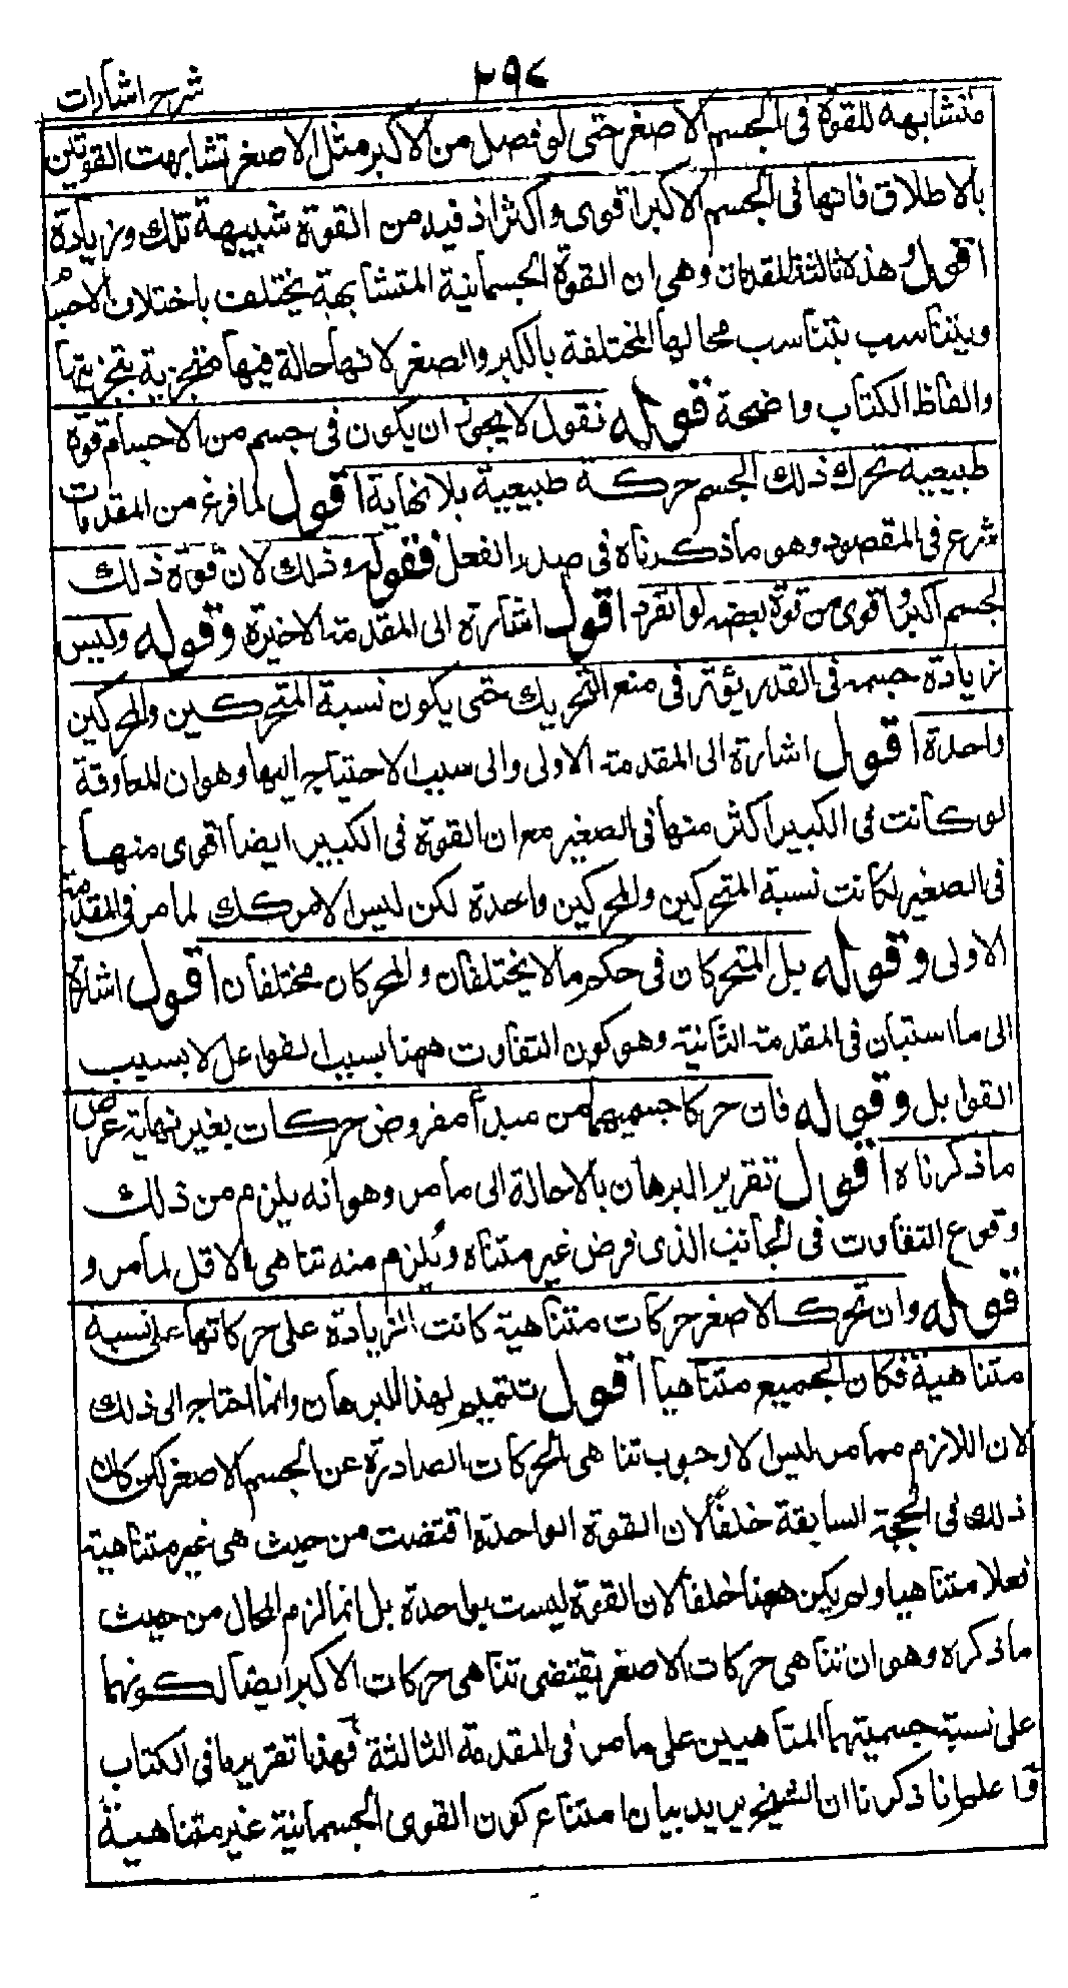 شرح اشارات
٢٩٨
متشابهة للقوة فى الجسم الاصغر حتى لو فصل من الاكبر مثل الاصغر تشابهت القوتين
بالاطلاق فانها فى الجسم الاكبر اقوى واكثر اذ فيه من القوة شبيهة تلك وزيادة
اقول هذه ثالثة المقدمات وهى ان القوة الجسمانية المتشابهة يختلف باختلاف الاجسام
ويتناسب بتناسب محالها المختلفة بالكبر والصغر لانها حالة فيها متجزية بتجزيتها
والفاظ الكتاب واضحة قوله نقول لا يجوز ان يكون فى جسم من الاجسام قوة
طبيعية تحرك ذلك الجسم حركة طبيعية بلانهاية اقول لما فرغ من المقدمات
شرع فى المقصود وهو ما ذكرناه فى صدر الفصل فقوله وذلك لان قوة ذلك
الجسم اكبر واقوى من قوة بعضه لو انفرد اقول اشارة الى المقدمة الاخيرة وقوله وليس
زيادة جسمه فى القدر يؤثر فى منع التحريك حتى يكون نسبة المتحركين والمحركين
واحدة اقول اشارة الى المقدمة الاولى والى سبب الاحتياج اليها وهو ان المعاوقة
لو كانت فى الكبير اكثر منها فى الصغير مع ان القوة فى الكبير ايضا اقوى منها
فى الصغير لكانت نسبة المتحركين والمحركين واحدة لكن ليس الامر كك لما مر فى المقدمة
الاولى وقوله بل المتحركان فى حكم ما لا يختلفان والمحركان مختلفان اقول اشارة
الى ما استبان فى المقدمة الثانية وهو كون التفاوت ههنا بسبب الفواعل لا بسبب
القوابل وقوله فان حركا جسميهما من مبدأ مفروض حركات بغير نهاية عرض
ما ذكرناه اقول تقرير البرهان بالاحالة الى ما مر وهو انه يلزم من ذلك
وقوع التفاوت فى الجانب الذى فرض غير متناه ويلزم منه تناهى الاقل لما مر و
قوله وان تحرك الاصغر حركات متناهية كانت الزيادة على حركاتها على نسبة
متناهية فكان الجميع متناهيا اقول تتميم لهذا البرهان وانما احتاج الى ذلك
لان اللازم مما مر ليس الا وجوب تناهى الحركات الصادرة عن الجسم الاصغر لكن كان
ذلك فى الحجة السابقة خلفا لان القوة الواحدة اقتضت من حيث هى غير متناهية
فعلا متناهيا ولم يكن ههنا خلفا لان القوة ليست بواحدة بل انما لزم المحال من حيث
ما ذكره وهو ان تناهى حركات الاصغر يقتضى تناهى حركات الاكبر ايضا لكونهما
على نسبة جسميتهما المتناهيين على ما مر فى المقدمة الثالثة فهذا تقرير ما فى الكتاب
واعلم انا ذكرنا ان الشيخ يريد بيان امتناع كون القوى الجسمانية غير متناهية